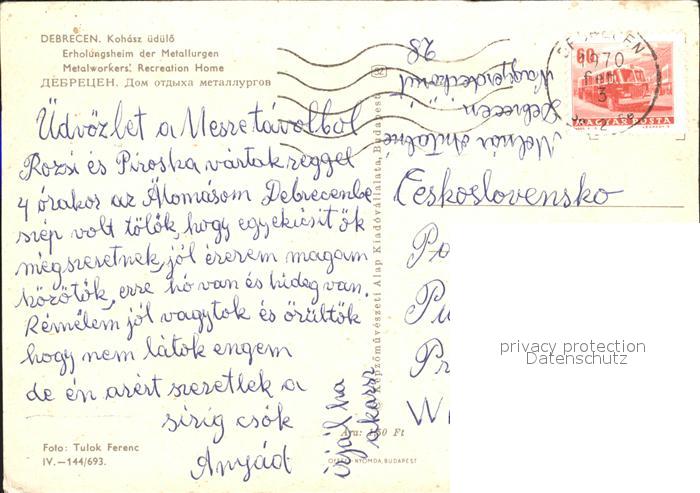 DEBRECEN. Kohász üdülő
Erholungsheim der Metallurgen
Metalworkers' Recreation Home
ДЕБРЕЦЕН. Дом отдыха металлургов
Üdvözlet a Messretávolból
Rozsi és Piroska vártak reggel
4 órakor az Álomásom Debrecenbe
szép volt tőlök, hogy egyekicsit ők
mégszeretnek, jól érzem magam
közötök, erre hó van és hideg van.
Rémélem jól vagytok és örültök
hogy nem látok engem
de én azért szeretlek a
sírig csók
Anyád
írjál ha
akarsz
Foto: Tulok Ferenc
IV.—144/693.
Képzőművészeti Alap Kiadóvállalata, Budapest
Ára: 1,50 Ft
OFFSET-NYOMDA, BUDAPEST
Molnár Antalné
Debrecen
Nagyerdeikörút
28
DEBRECEN
1970
3
60
MAGYAR POSTA
Československo
Po
Pu
Pr
privacy protection
Datenschutz